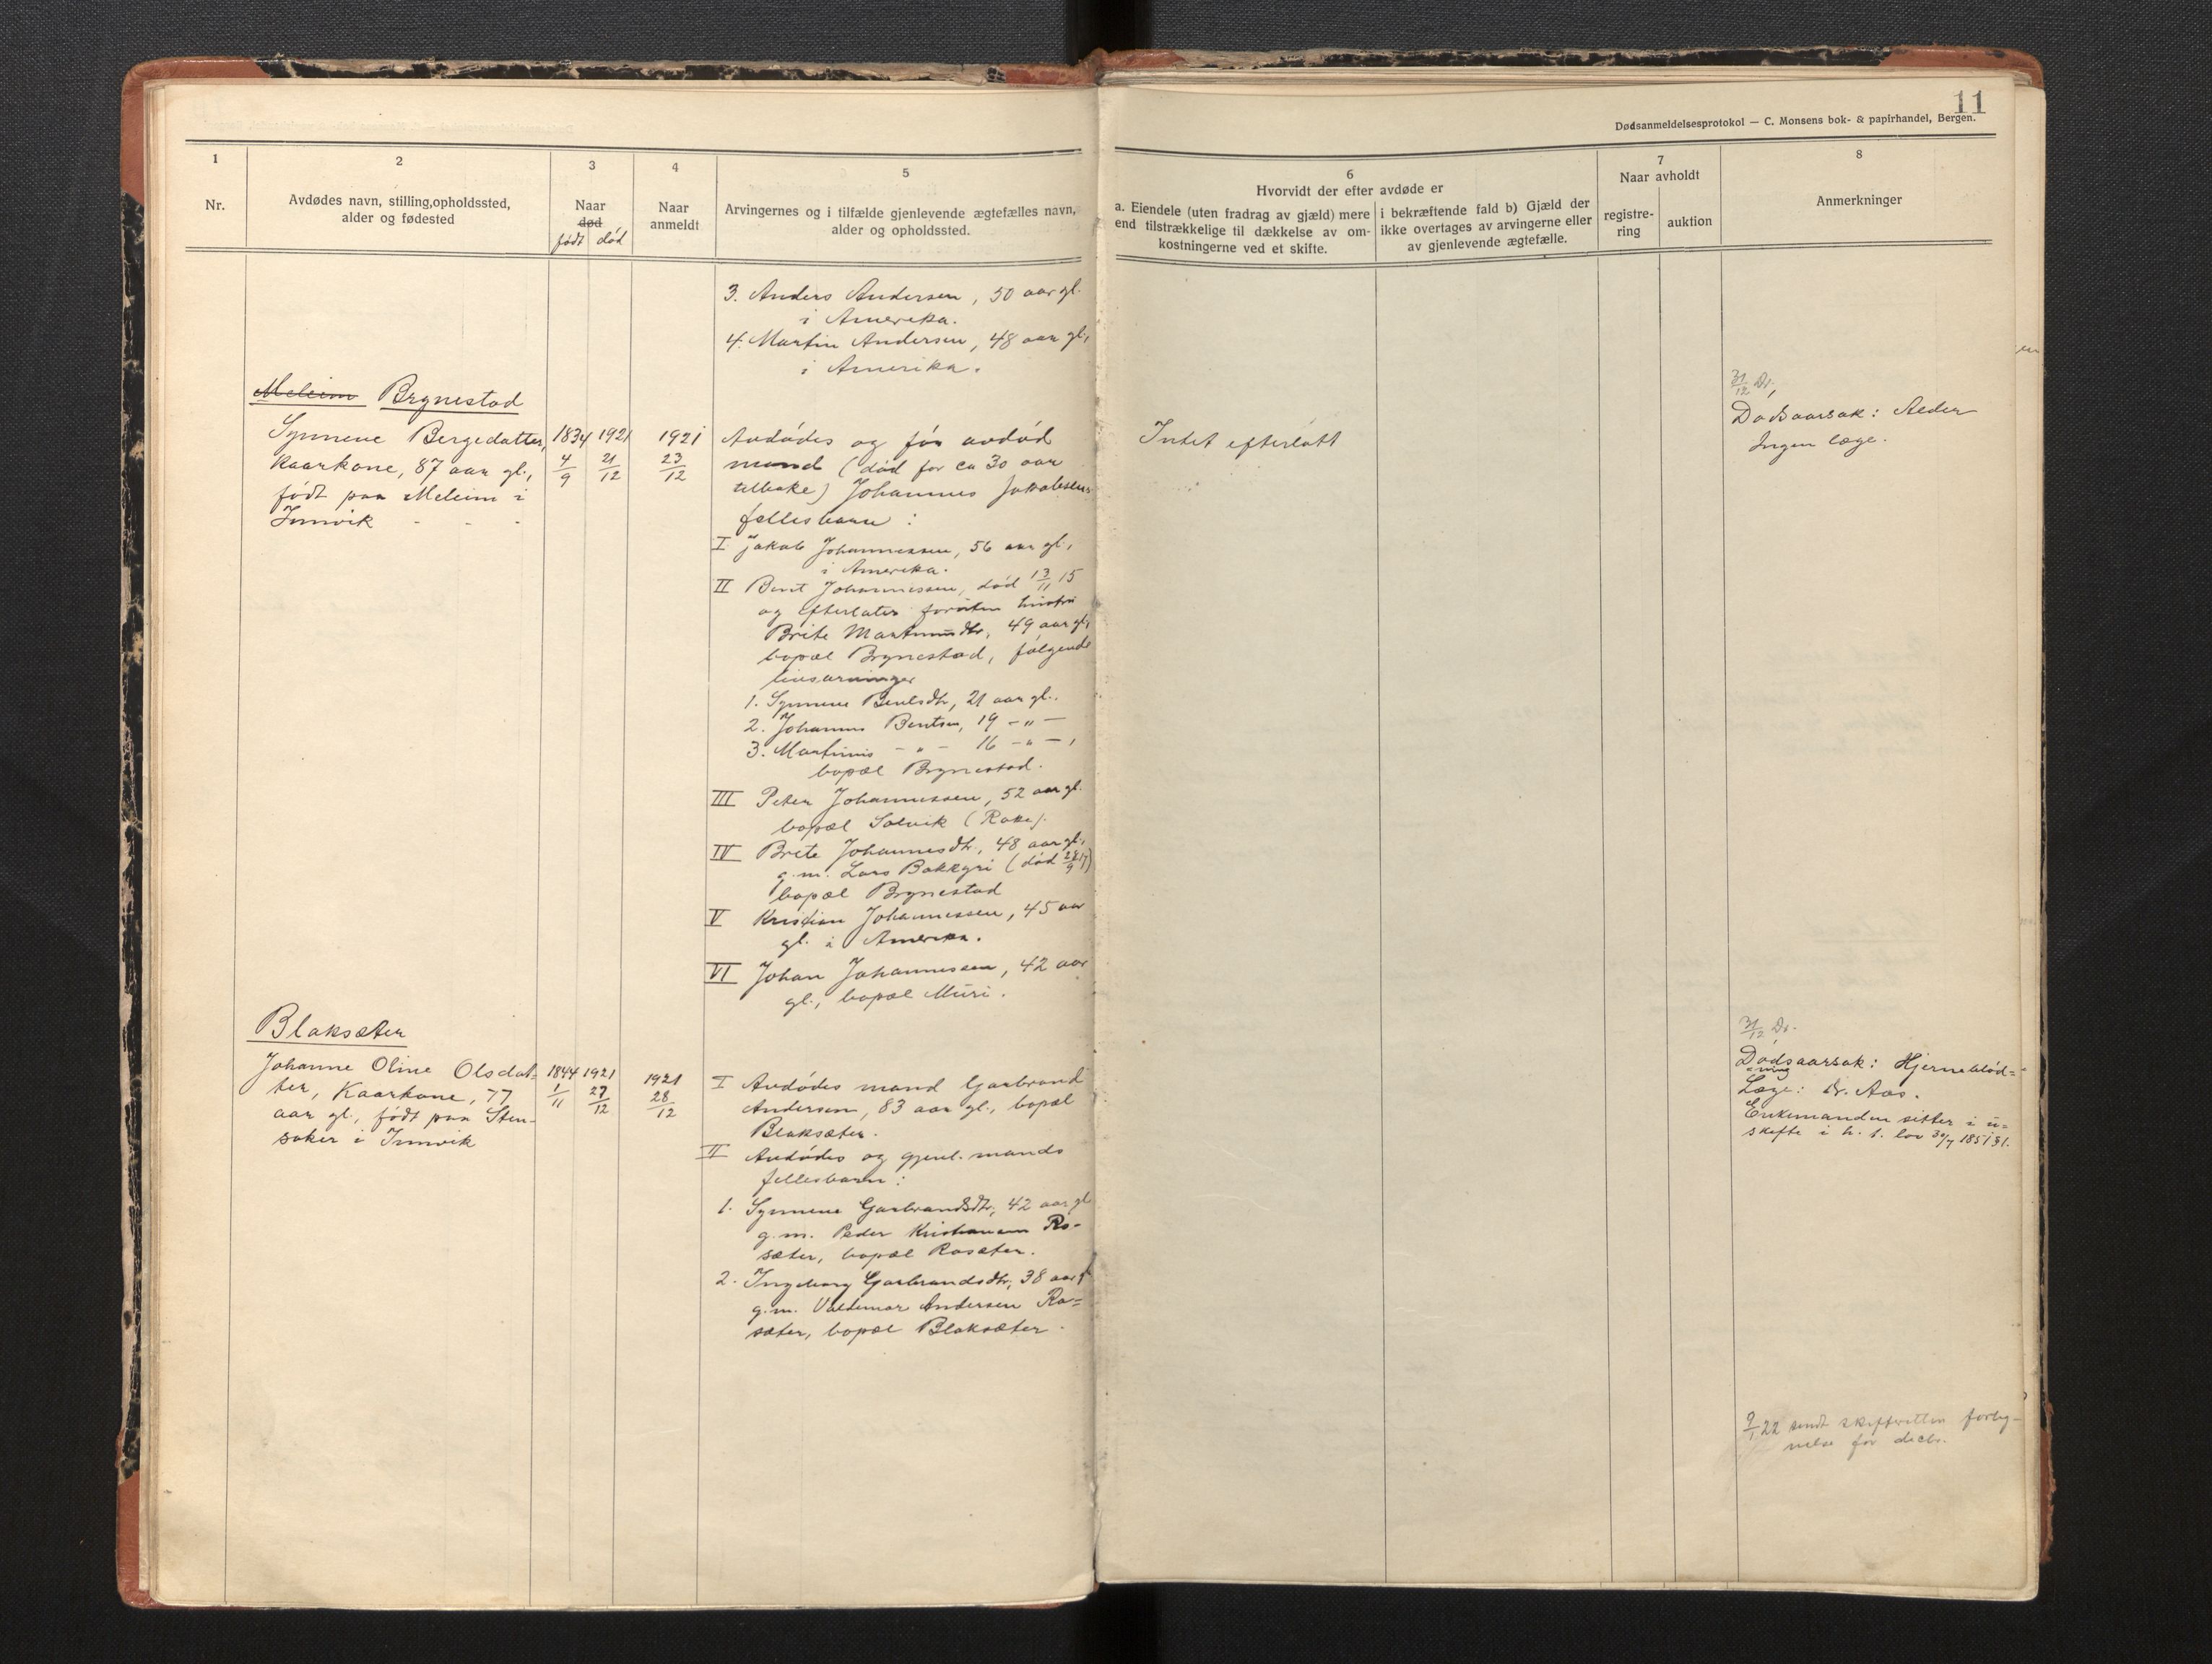 11
Dødsanmeldelsesprotokol — C. Monsens bok- & papirhandel, Bergen.
1
Nr.
2
Avdødes navn, stilling, opholdssted,
alder og fødested
3
Naar
død
født død
4
Naar
anmeldt
5
Arvingernes og i tilfælde gjenlevende ægtefælles navn,
alder og opholdssted.
6
Hvorvidt der efter avdøde er
a. Eiendele (uten fradrag av gjæld) mere
end tilstrækkelige til dækkelse av om-
kostningerne ved et skifte.
i bekræftende fald b) Gjæld der
ikke overtages av arvingerne eller
av gjenlevende ægtefælle.
7
Naar avholdt
registre-
ring
auktion
8
Anmerkninger
3. Anders Andersen, 50 aar gl.
i Amerika.
4. Martin Andersen, 48 aar gl.,
i Amerika.
Meleim Brynestad
Synneve Bergedatter,
Kaarkone, 87 aar gl.,
født paa Meleim i
Innvik - - -
1834 1921
4/9 21/12
1921
23/12
Avdødes og før avdød
mand (død for ca 30 aar
tilbake) Johannes Jakobsens
fellesbarn :
I Jakob Johannessen, 56 aar gl.,
i Amerika.
II Bent Johannessen, død 13/11 15
og efterlater foruten hustru
Brite Martinusdtr., 49 aar gl.,
bopæl Brynestad, følgende
livsarvinger
1. Synneve Bentsdtr, 21 aar gl.
2. Johannes Bentsen, 19 - " -
3. Martinus - " - 16 - " - ,
bopæl Brynestad.
III Peter Johannessen, 52 aar gl.
bopæl Solvik
IV Brite Johannesdtr., 48 aar gl.,
g.m. Lars Bakkyri (død
bopæl Brynestad
V Kristian Johannessen, 45 aar
gl. i Amerika.
VI Johan Johannessen, 42 aar
gl., bopæl Muri.
Intet efterlatt
31/12 Dr.,
Dødsaarsak: Alder
Ingen læge.
Blaksæter
Johanne Oline Olsdat=
ter, Kaarkone, 77
aar gl., født paa Sten-
saker i Innvik
1844 1921
1/11 27/12
1921
28/12
I Avdødes mand Garbrand
Andersen, 83 aar gl., bopæl
Blaksæter.
II Avdødes og gjenl. mands
fellesbarn :
1. Synneve Garbrandsdtr., 42 aar gl
g.m. Peder Kristiansen Ro-
sæter, bopæl Rosæter.
2. Ingeborg Garbrandsdtr., 38 aar gl
g.m. Valdemar Andersen Ro=
sæter, bopæl Blaksæter.
31/12 Dr.
Dødsaarsak: Hjerneblød=
ning
Læge: Dr. Aas.
Enkemanden sitter i u=
skifte i h. t. lov
9/1 22 sendt skifteretten